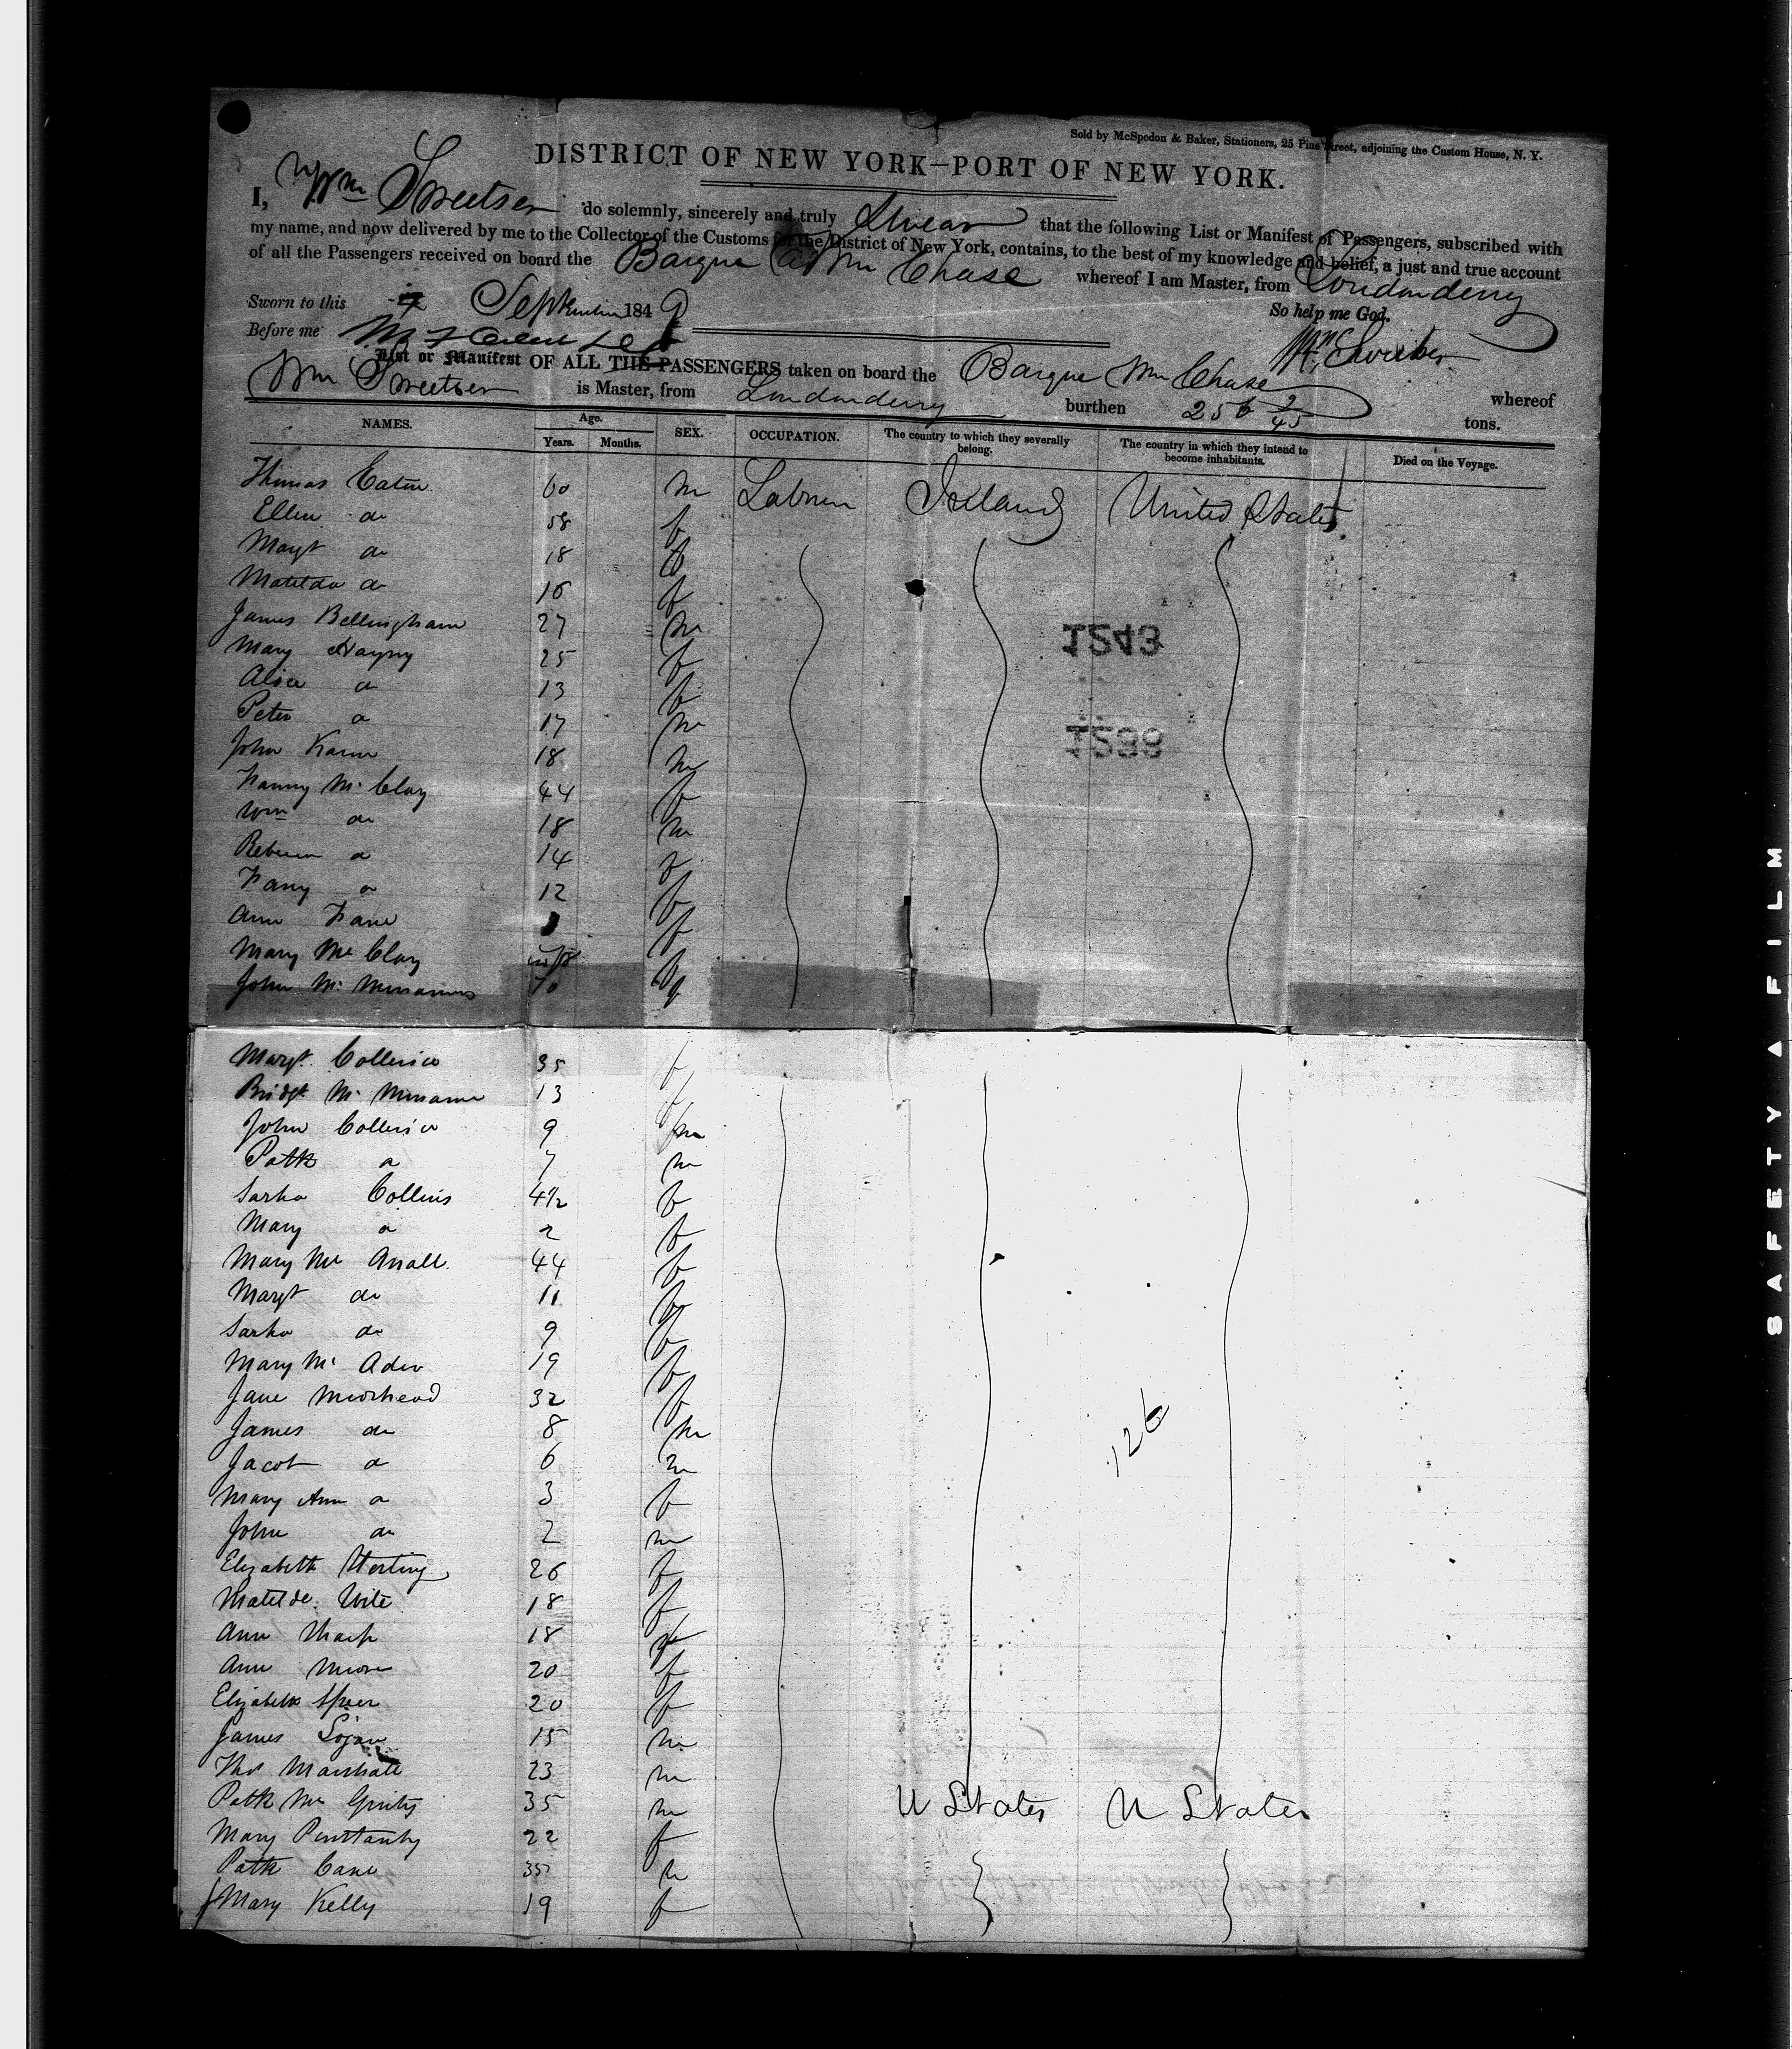 Sold by McSpedon & Baker, Stationers, 25 Pine Street, adjoining the Custom House, N. Y.
DISTRICT OF NEW YORK—PORT OF NEW YORK.
I, Wm Sweetser do solemnly, sincerely and truly Swear that the following List or Manifest of Passengers, subscribed with
my name, and now delivered by me to the Collector of the Customs for the District of New York, contains, to the best of my knowledge and belief, a just and true account
of all the Passengers received on board the Barque Wm Chase whereof I am Master, from Londonderry
Sworn to this September 1849 So help me God.
Before me Wm Sweetser
List or Manifest OF ALL THE PASSENGERS taken on board the Barque Wm Chase whereof
Wm Sweetser is Master, from Londonderry burthen 256 2/45 tons.
NAMES. Age. Years. Months. SEX. OCCUPATION. The country to which they severally belong. The country in which they intend to become inhabitants. Died on the Voyage.
Thomas Eaton 60 m Labourer Ireland United States
Ellen do 58 f
Margt do 18 f
Matilda do 16 f
James Bellingham 27 m
Mary 25 f
Alice do 13 f
Peter do 17 m
John Kane 18 m
Fanny Mc Clay 44 f
Wm do 18 m
Rebecca do 14 f
Fany do 12 f
Ann Kane f
Mary Mc Clay inft f
John Mc 70
1243
1238
Margt 35 f
Bridgt Mc 13 f
John 9 m
Patk do 7 m
Sarha Collins 4½ f
Mary do 2 f
Mary Mc 44 f
Margt do 11 f
Sarha do 9 f
Mary Mc 19 f
Jane Muirhead 32 f
James do 8 m
Jacob do 6 m
Mary Ann do 3 f
John do 2 m
126
Elizabeth 26 f
Matilde 18 f
Ann Tharp 18 f
Ann Moore 20 f
Elizabeth Speer 20 f
James Logan 15 m
Thos Marshall 23 m
Patk Mc 35 m U States U States
Mary 22 f
Patk Cane 35 m
Mary Kelly 19 f
SAFETY A FILM